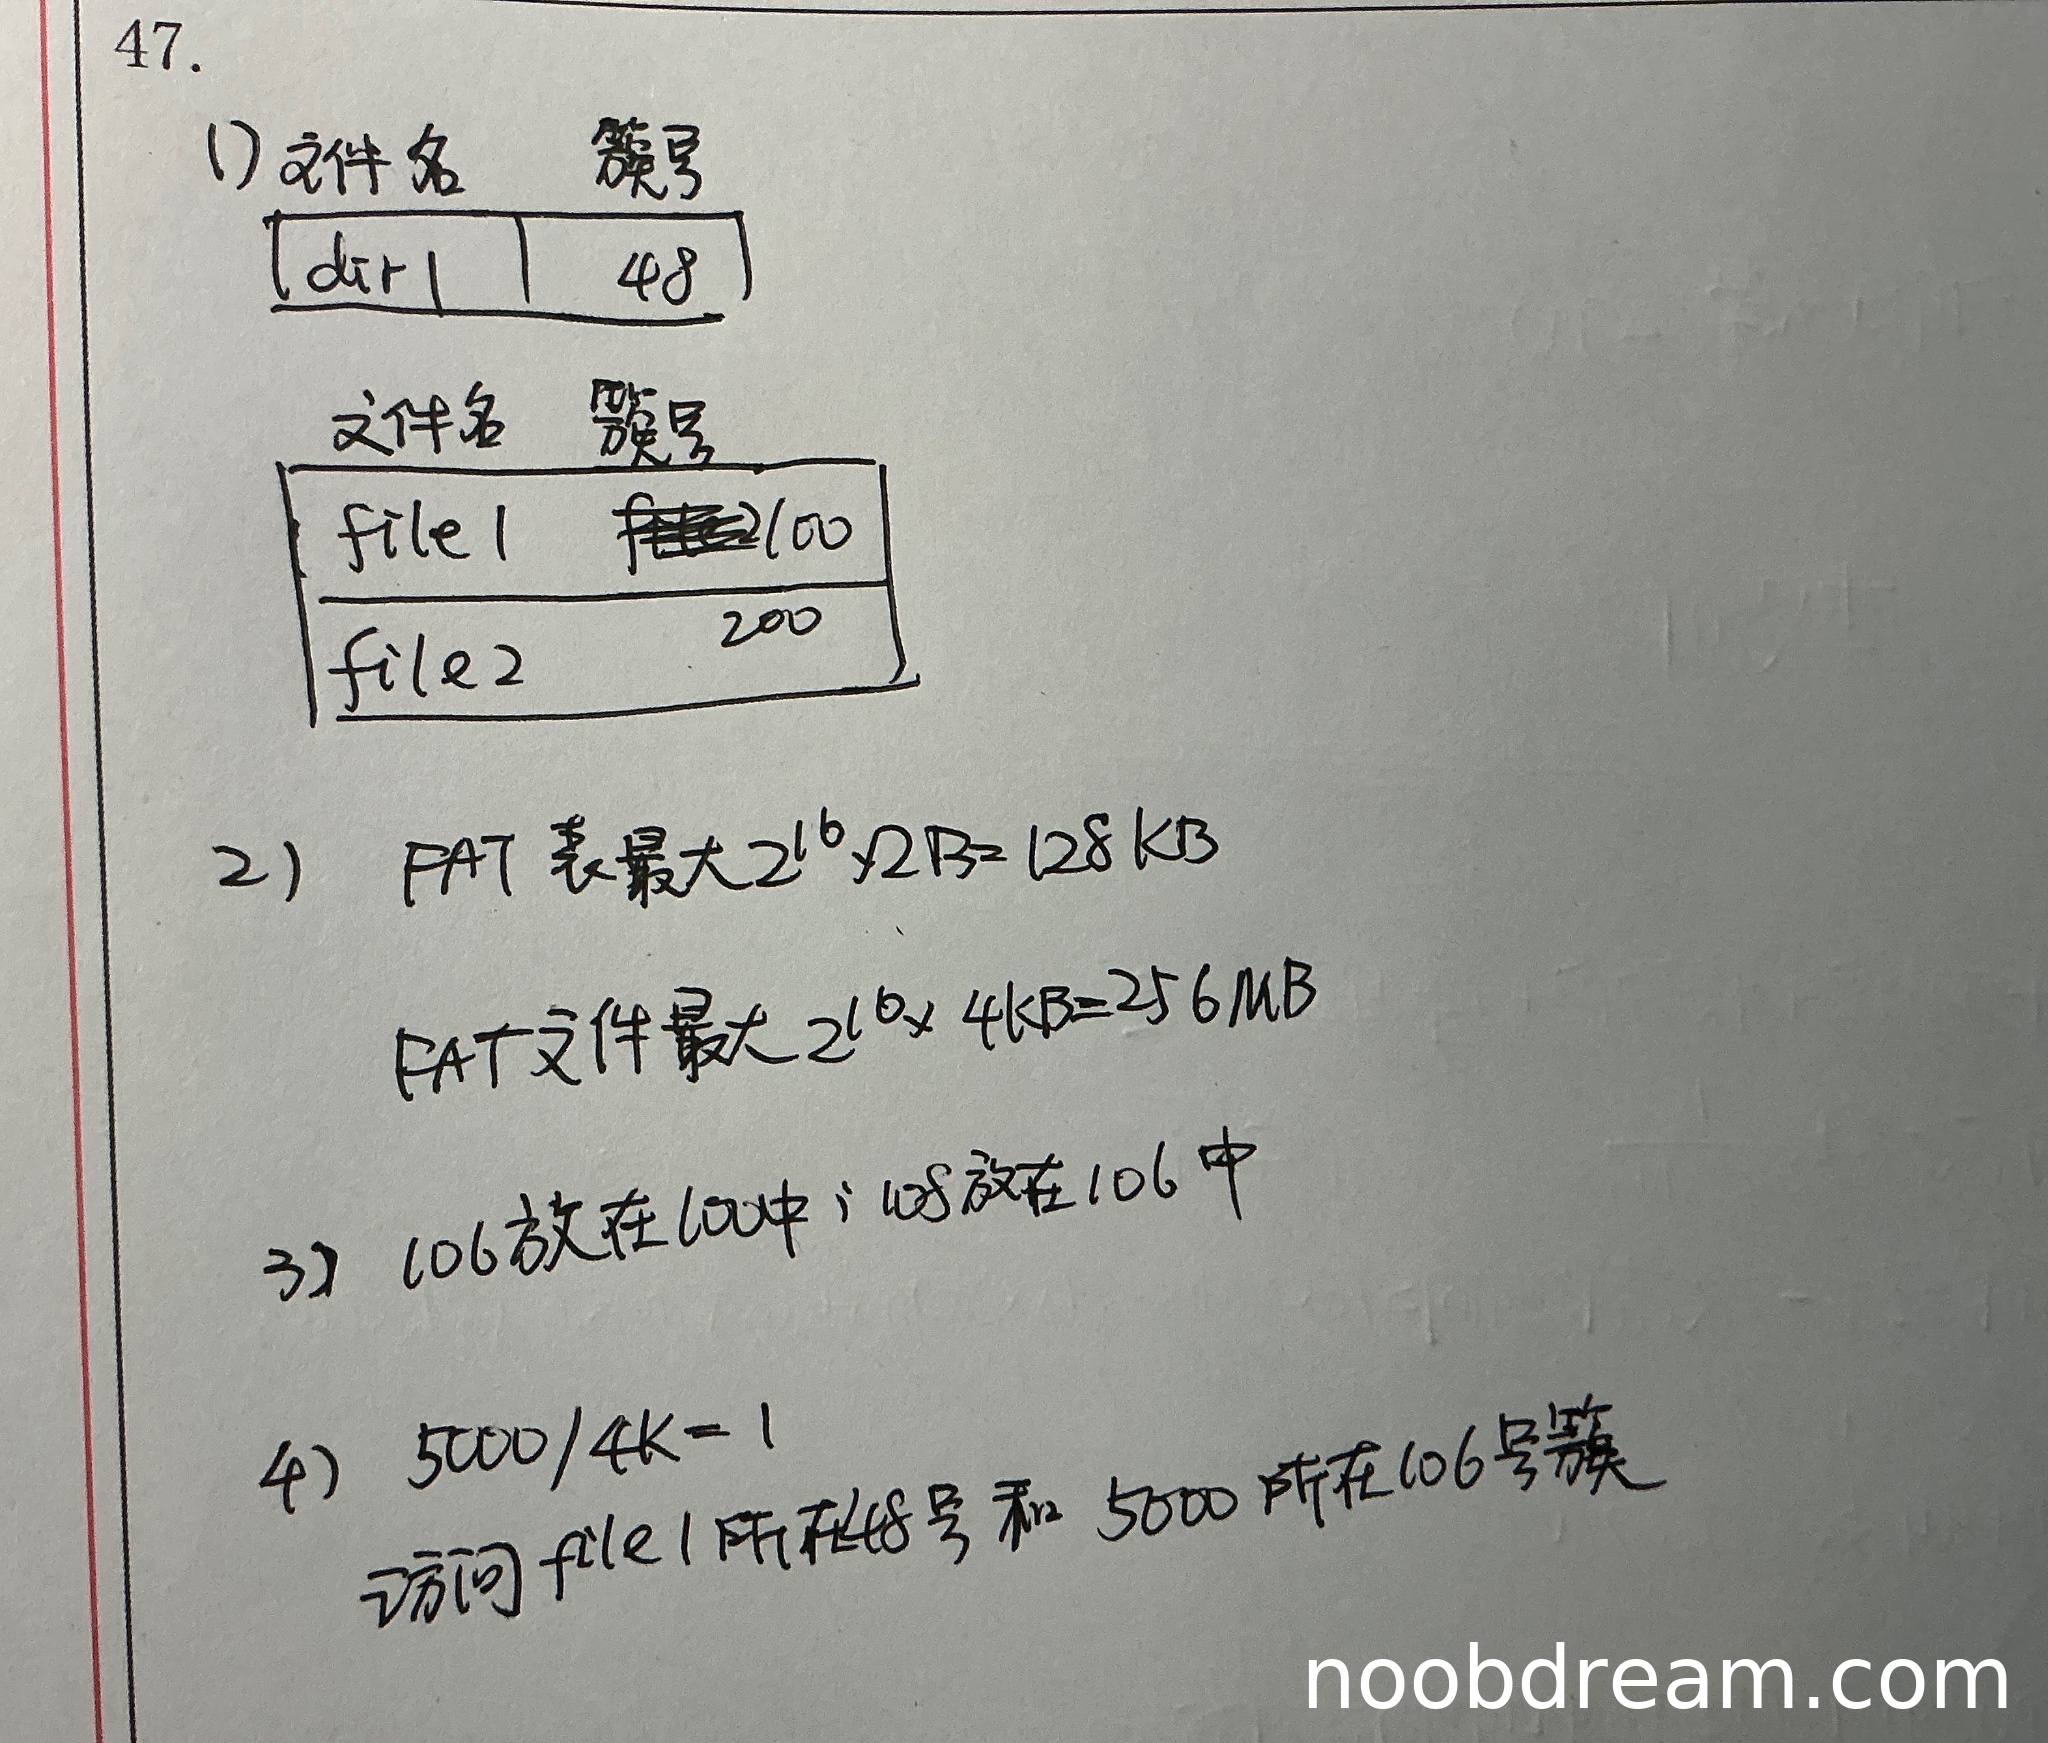 47.
1) 文件名 簇号
dir1 48
文件名 簇号
file1 100
file2 200
2) FAT表最大2^16×2B=128KB
FAT文件最大2^16×4KB=256MB
3) 106放在100中；108放在106中
4) 5000/4K=1
访问file1所在48号和5000所在106号簇
noobdream.com